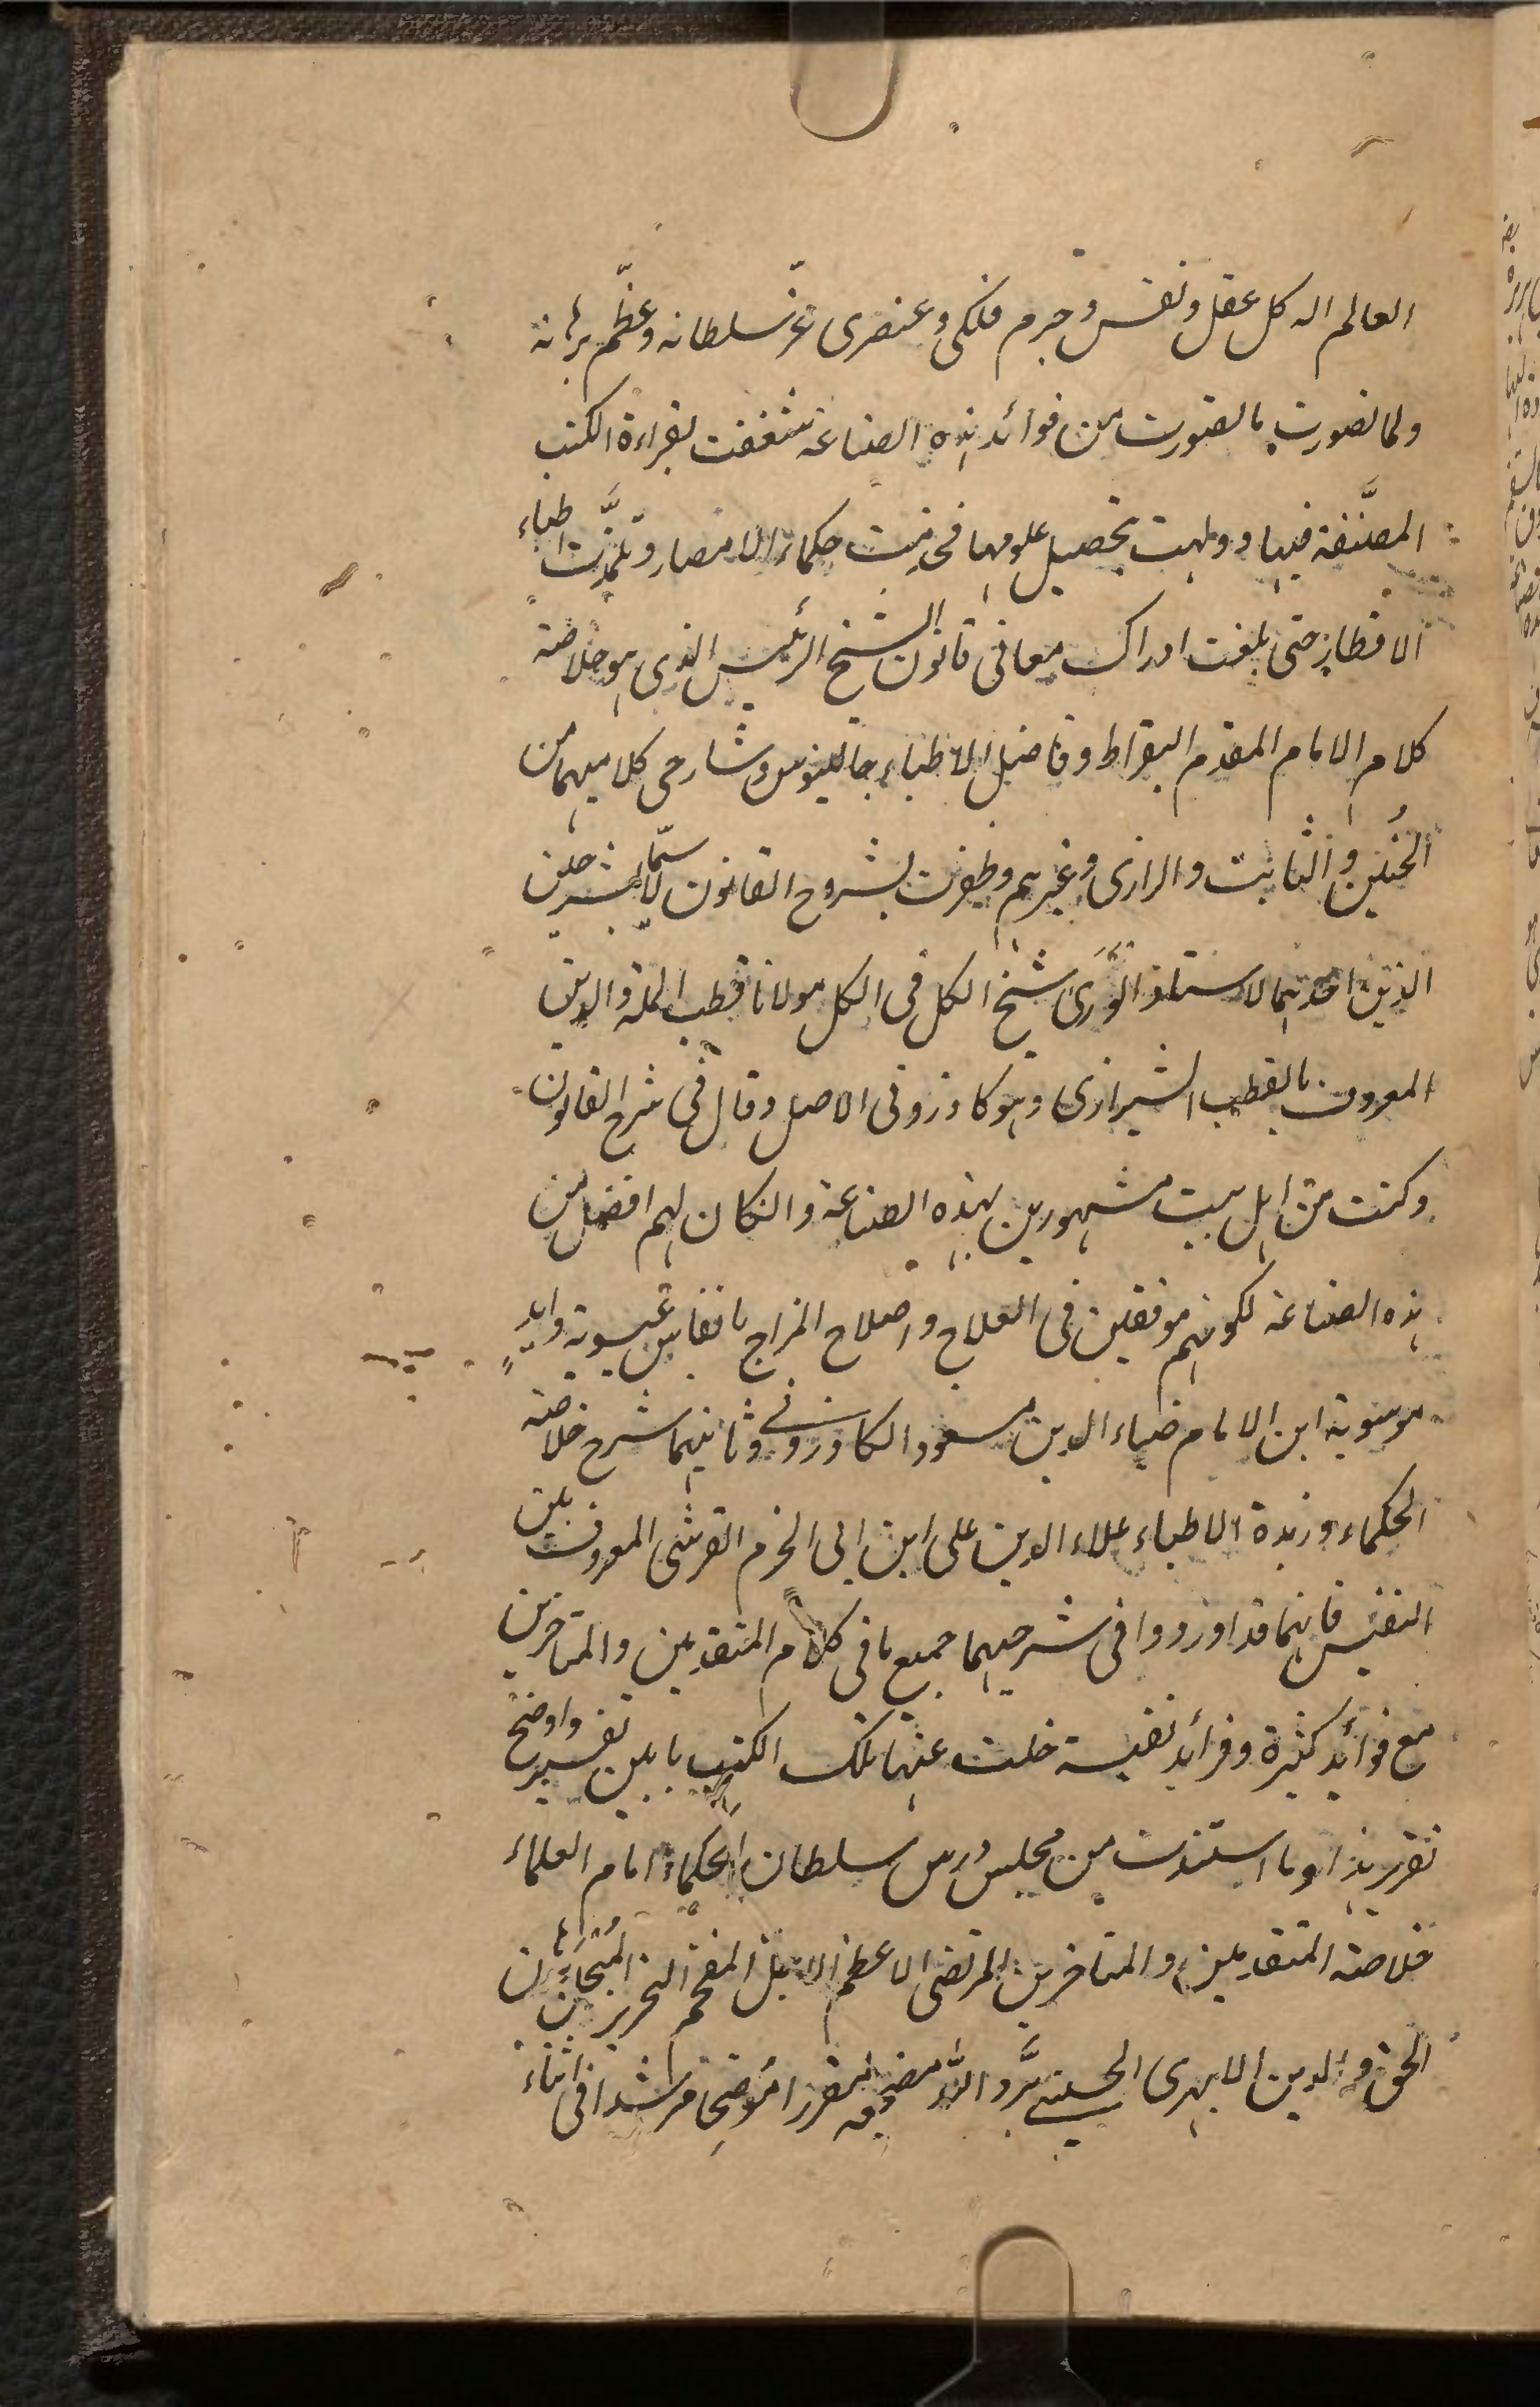 العالم اله كل عقل ونفس وجرم فلكى وعنصرى عزّ سلطانه وعظّم برهانه
ولما تصورت ما تصورت من فوائد هذه الصناعة شغفت بقراءة الكتب
المصنَّفة فيها وولهت بتحصيل علومها فخدمت حكماء الامصار وتلمّذت اطباء
الاقطار حتى بلغت ادراك معانى قانون الشيخ الرئيس الذى هو خلاصة
كلام الامام المقدم البقراط وفاضل الاطباء جالينوس وشارحى كلاميهما من
الحُنين والثابت والرازى وغيرهم وظفرت بشروح القانون لا سيّما الشرحين
الذين احدهما لاستاذ الوَرَى شيخ الكل فى الكل مولانا قطب الملة والدين
المعروف بالقطب الشيرازى وهو كازرونى الاصل وقال فى شرح القانون
وكنت من اهل بيت مشهورين بهذه الصناعة والنكان لهم افضل من
هذه الصناعة لكونهم موفقين فى العلاج واصلاح المزاج بانفاس عيسوية وايدٍ
موسوية ابن الامام ضياء الدين مسعود الكازرونى وثانيهما شرح خلاصة
الحكماء وزبدة الاطباء علاء الدين على ابن ابى الحزم القرشى المعروف بابن
النفيس فانهما قد اوردوا فى شرحيهما جميع ما فى كلام المتقدمين والمتاخرين
مع فوائد كثيرة وفرائد نفيسة خلت عنها تلك الكتب بابين تفسير واوضح
تقرير هذا وما استفدت من مجلس درس سلطان الحكماء امام العلماء
خلاصة المتقدمين والمتاخرين المرتضى الاعظم الاجل المفخم النحرير برهان
الحق والدين الابهرى الحسينى برَّد الله مضجعه مقررا مُوضِحا مرشدا فى اثناء